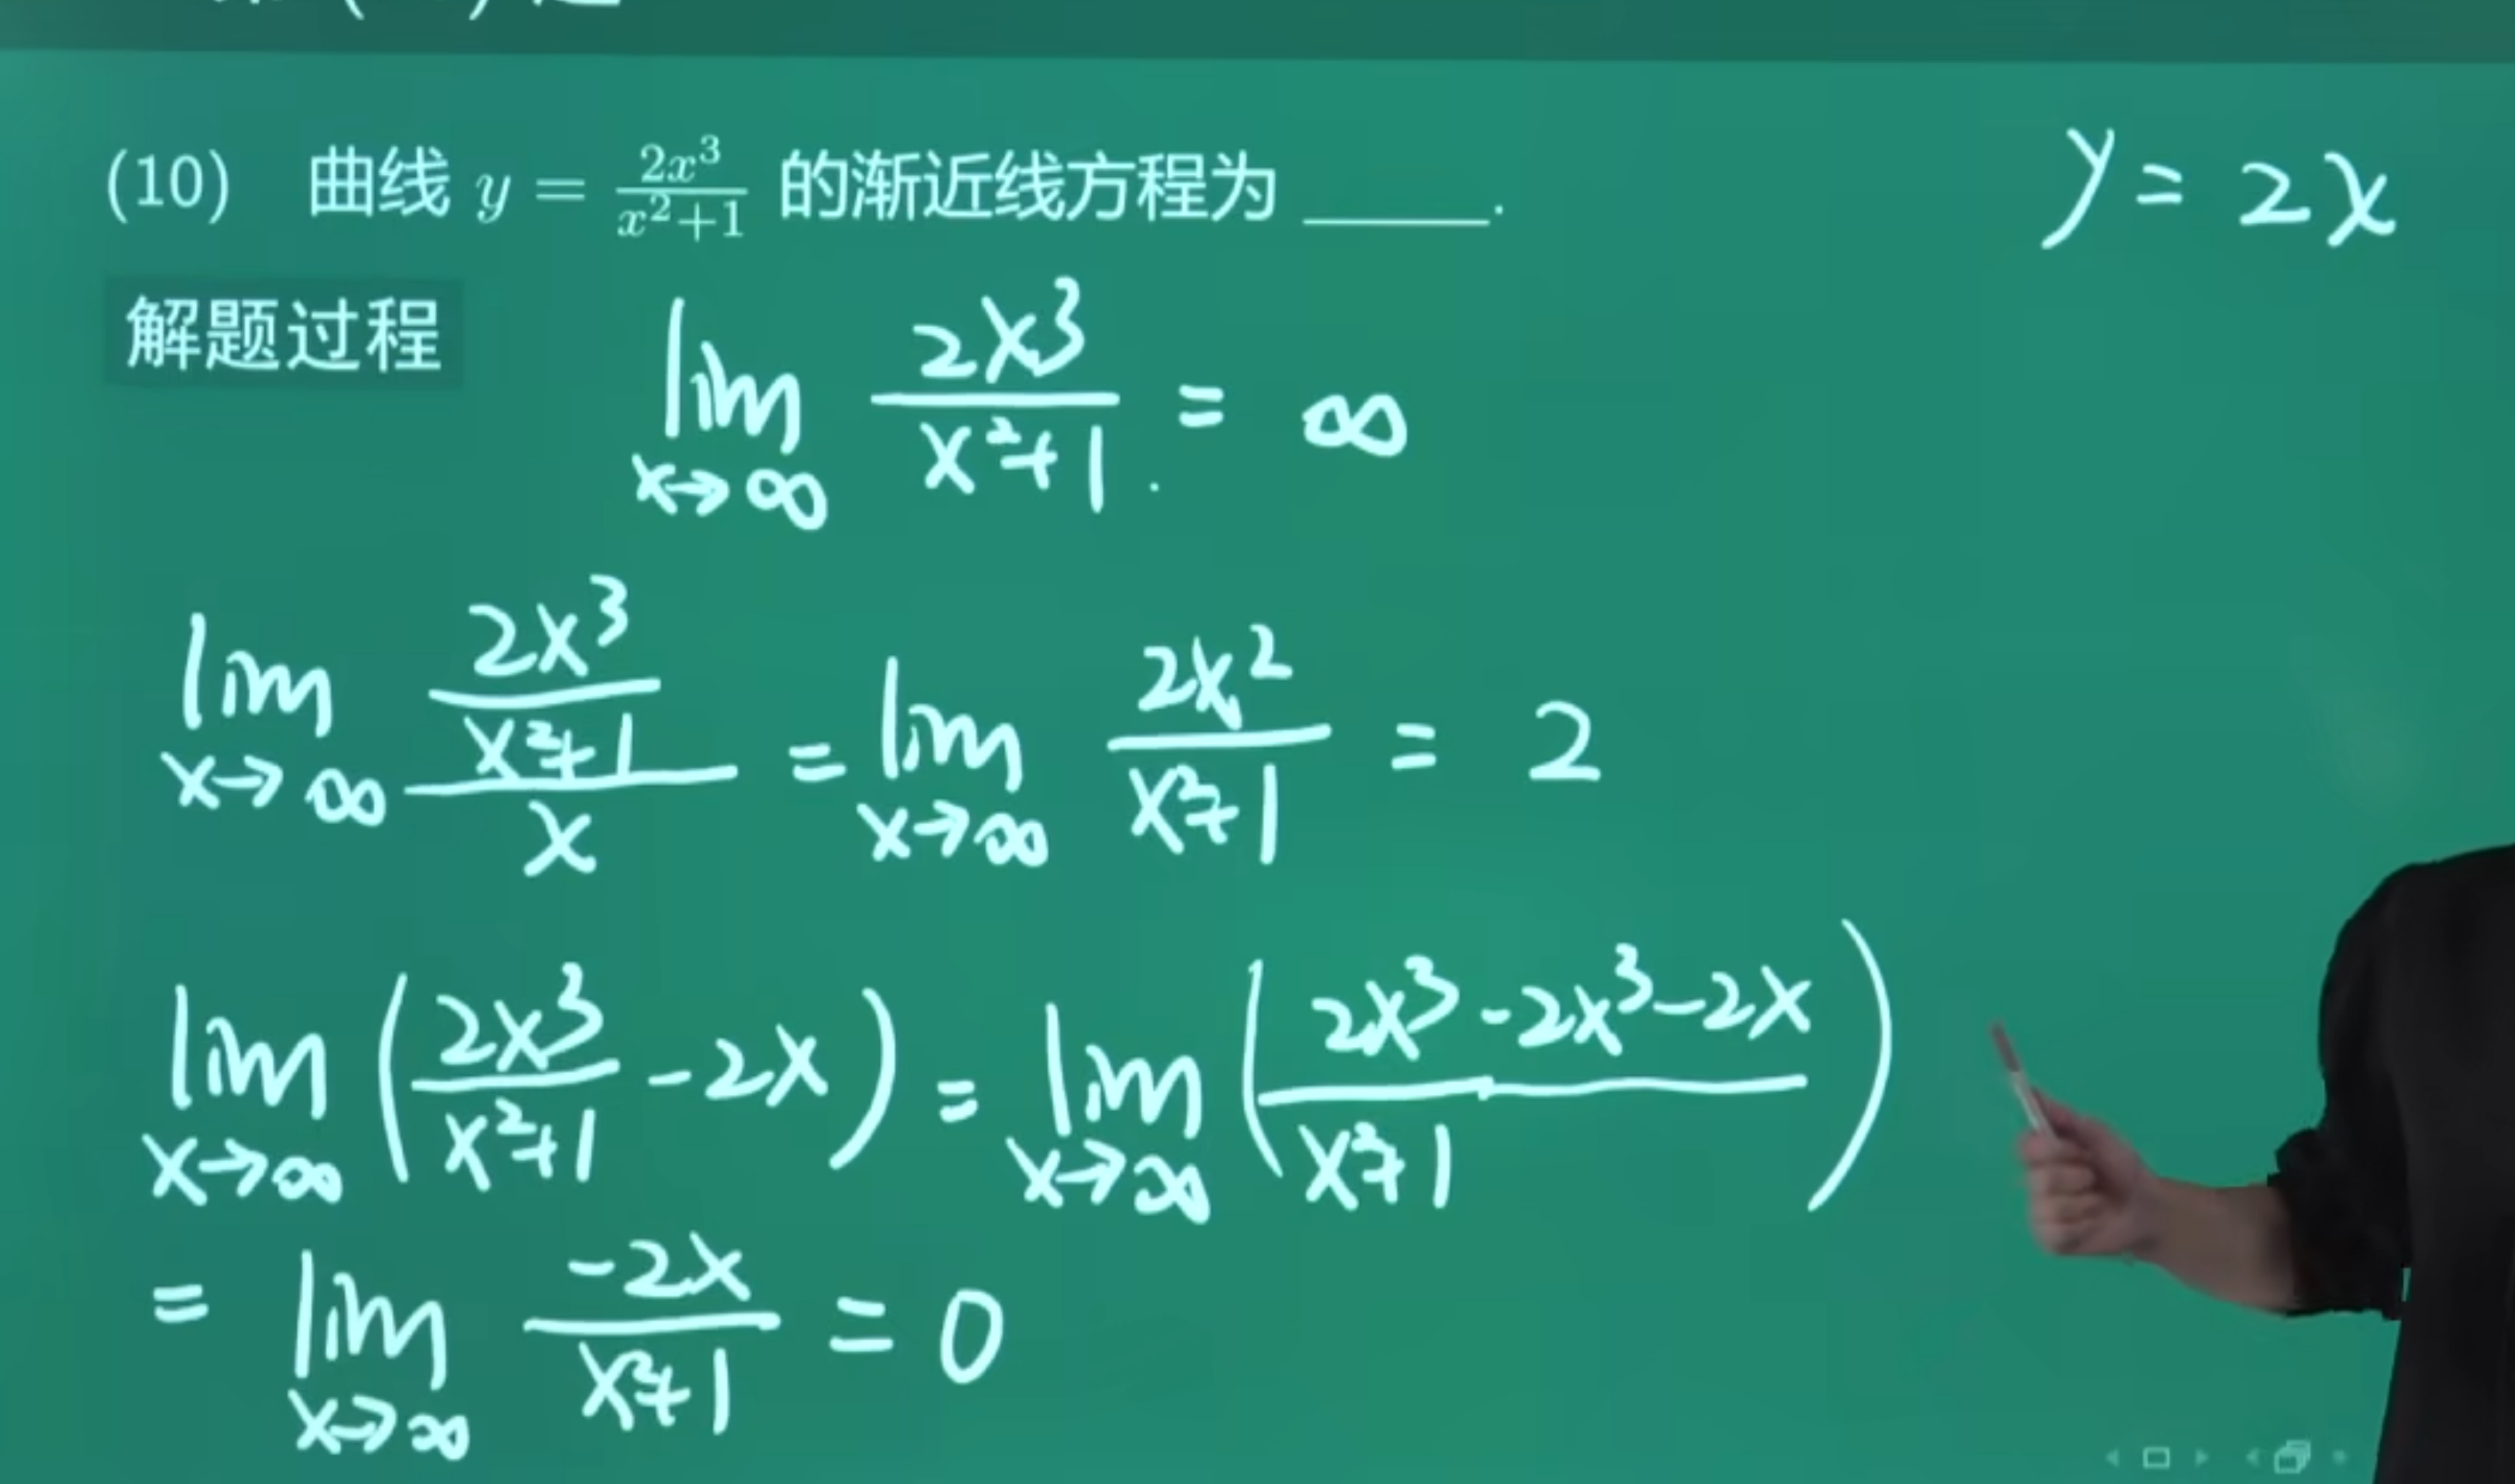 (10) 曲线 y = \frac{2x^3}{x^2+1} 的渐近线方程为 ______.
y = 2x
解题过程
\lim_{x→∞} \frac{2x^3}{x^2+1} = ∞
\lim_{x→∞} \frac{\frac{2x^3}{x^2+1}}{x} = \lim_{x→∞} \frac{2x^2}{x^2+1} = 2
\lim_{x→∞} \left( \frac{2x^3}{x^2+1} - 2x \right) = \lim_{x→∞} \left( \frac{2x^3-2x^3-2x}{x^2+1} \right)
= \lim_{x→∞} \frac{-2x}{x^2+1} = 0